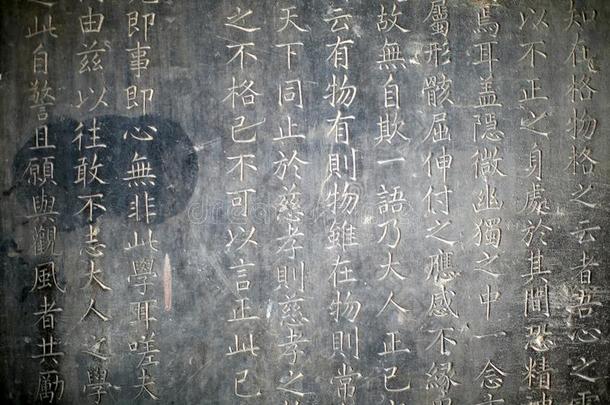 知代格物格之云者吾心之
以不正之身處於其閒恐精
焉耳蓋隱微幽獨之中一念
屬形骸屈伸付之應感不緣
故無自欺一語乃大人正已
云有物有則物雖在物則常
天下同止於慈孝則慈孝之
之不格已不可以言正此已
即事即心無非此學耳嗟夫
由兹以往敢不志大人之學
此自警且願與觀風者共勵